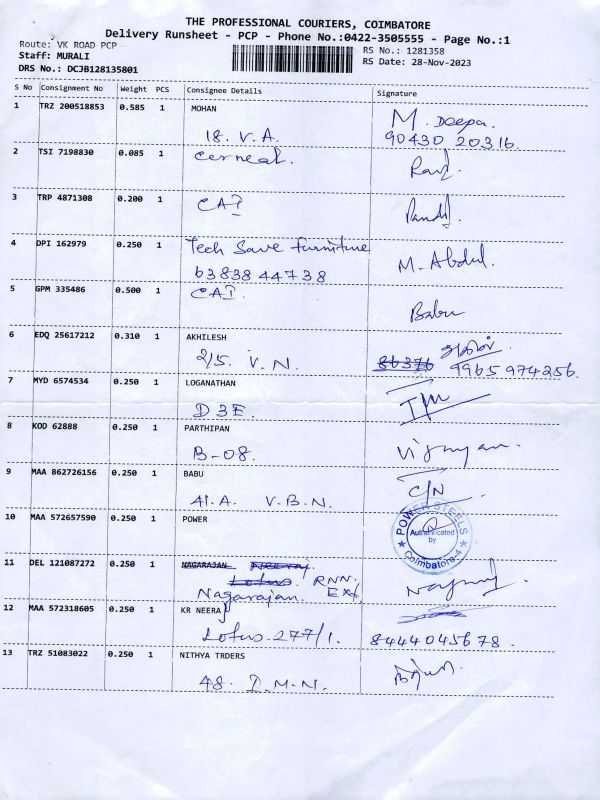 THE PROFESSIONAL COURIERS, COIMBATORE
Delivery Runsheet - PCP - Phone No.:0422-3505555 - Page No.:1
Route: VK ROAD PCP
RS No.: 1281358
Staff: MURALI
RS Date: 28-Nov-2023
DRS No.: DCJB128135801
S No Consignment No Weight PCS Consignee Details Signature
1 TRZ 200518853 0.585 1 MOHAN M. Deepa.
18. V.A. 90430 20316.
2 TSI 7198830 0.085 1 cerneal.
3 TRP 4871308 0.200 1 CAI
4 DPI 162979 0.250 1 Tech Save furniture
63838 44738 M. Abdul.
5 GPM 335486 0.500 1 CAI.
Babu
6 EDQ 25617212 0.310 1 AKHILESH
2/5. V.N. 86376 9965974256.
7 MYD 6574534 0.250 1 LOGANATHAN
D3E.
8 KOD 62888 0.250 1 PARTHIPAN
B-08.
9 MAA 862726156 0.250 1 BABU C/N
41.A. V.B.N.
10 MAA 572657590 0.250 1 POWER
POWER STEELS
Authenticated
by
Coimbatore-4
11 DEL 121087272 0.250 1 NAGARAJAN Neeraj
Lotus. RNN.
Nagarajan. Ext
12 MAA 572318605 0.250 1 KR NEERAj
Lotus. 277/1. 8444045678.
13 TRZ 51083022 0.250 1 NITHYA TRDERS
48. I.M.N.